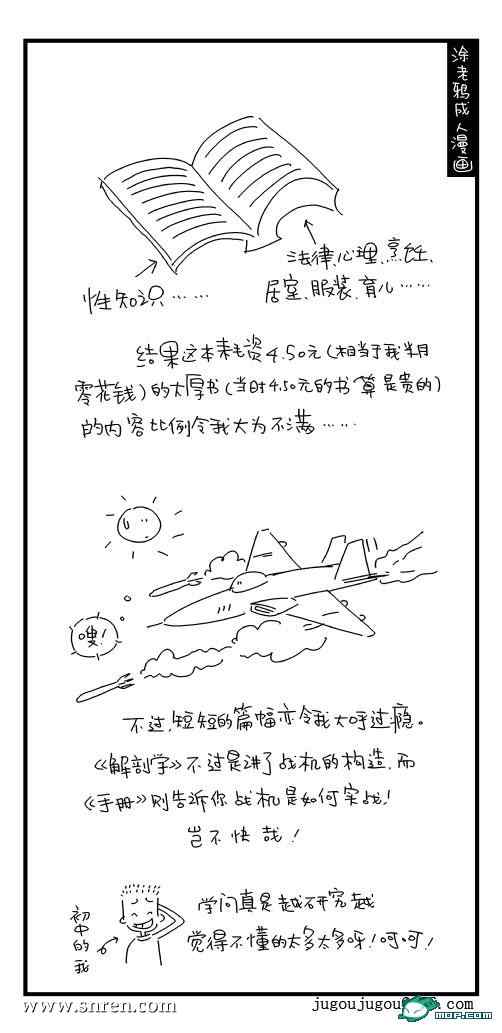 涂老鸦成人漫画
法律、心理、烹饪、
居室、服装、育儿……
性知识……
结果这本耗资4.50元(相当于我半月
零花钱)的大厚书(当时4.50元的书算是贵的)
的内容比例令我大为不满……
嗖!
不过,短短的篇幅亦令我大呼过瘾。
《解剖学》不过是讲了战机的构造,而
《手册》则告诉你战机是如何实战!
岂不快哉!
初中的我
学问真是越研究越
觉得不懂的太多太多呀!呵呵!
www.snren.com
jugoujugou
.com
MOP.COM